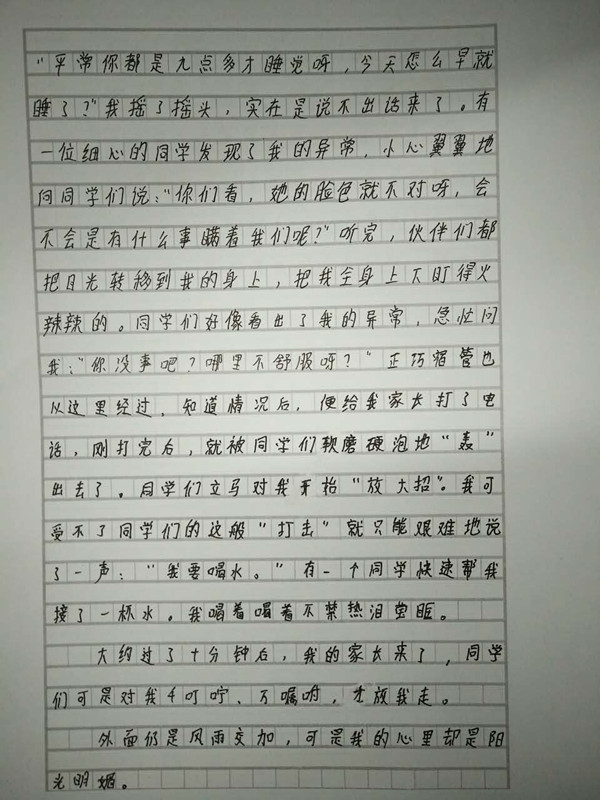 “平常你都是九点多才睡觉呀，今天怎么早就
睡了？”我摇了摇头，实在是说不出话来了。有
一位细心的同学发现了我的异常，小心翼翼地
向同学们说：“你们看，她的脸色就不对呀，会
不会是有什么事瞒着我们呢？”听完，伙伴们都
把日光转移到我的身上，把我全身上下盯得火
辣辣的。同学们好像看出了我的异常，急忙问
我：“你没事吧？哪里不舒服呀？”正巧宿管也
从这里经过，知道情况后，便给我家长打了电
话，刚打完后，就被同学们软磨硬泡地“轰”
出去了。同学们立马对我开始“放大招”。我可
受不了同学们的这般“打击”就只能艰难地说
了一声：“我要喝水。”有一个同学快速帮我
接了一杯水。我喝着喝着不禁热泪莹眶。
大约过了十分钟后，我的家长来了，同学
们可是对我千叮咛、万嘱咐，才放我走。
外面仍是风雨交加，可是我的心里却是阳
光明媚。